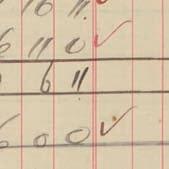 16 11 ✓
6 11 0 ✓
6 11
6 0 0 ✓